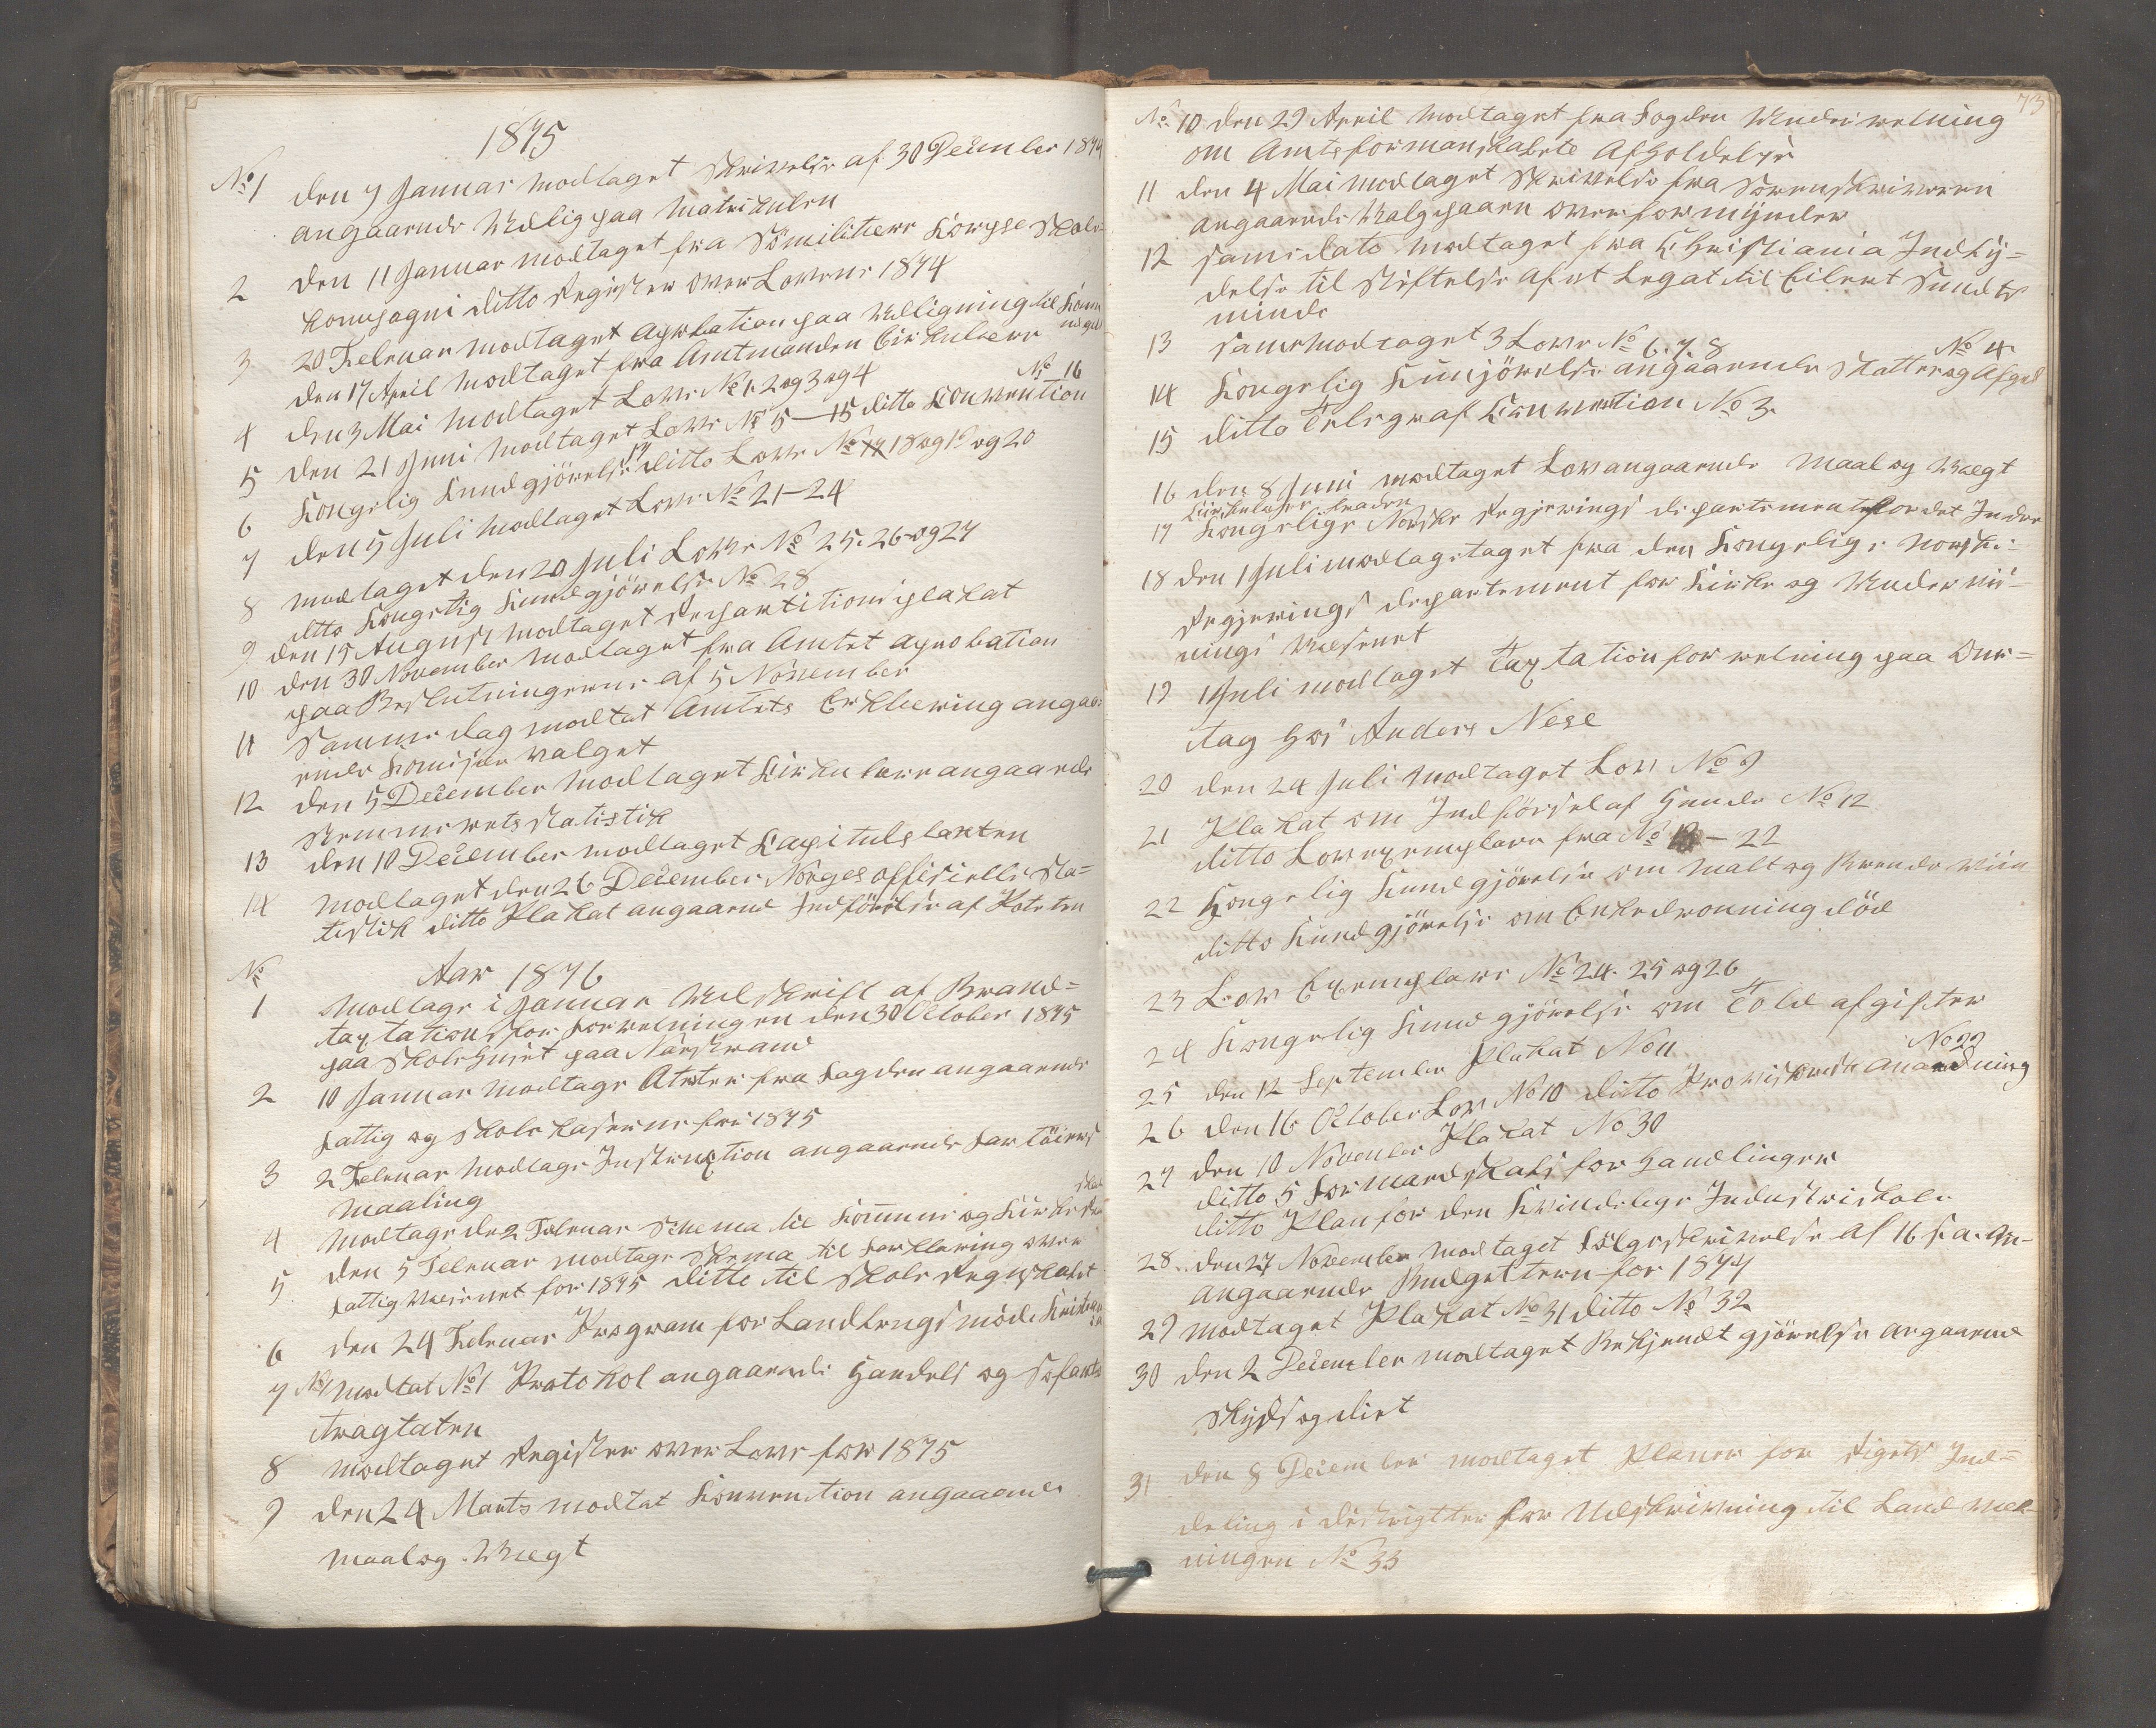 1875
No 1 den 7 Januar modtaget Skrivelse af 30 December 1874
angaaende Udlig paa Matrikulen
2 den 11 Januar modtaget fra Sömilitiere Korpse Skole=
kompagni ditto Register over Lovene 1874
3 20 Februar modtaget Aprobation paa Udligning til
den 17 April modtaget fra Amtmanden Cirkulære
4 den 3 Mai modtaget Love No 1. 2 og 3 og 4 No 16
5 den 21 Juni modtaget Love No 5 — 15 ditto Konvention
6 Kongelig Kundgjörelse 17 ditto Love No 18 og 19 og 20
7 den 5 Juli modtaget Love No 21-24
8 modtaget den 20 Juli Love No 25. 26 og 27
ditto Kongelig Kundgjörelse No 28
9 den 15 August modtaget Repartitions plakat
10 den 30 November modtaget fra Amtet Aprobation
paa Beslutningerne af 5 November
11 Samme dag modtat Amtets Erklæring angaa=
ende Komisær valget
12 den 5 December modtaget Cirkulære angaaende
Stemmerets Statistik
13 den 10 December modtaget Kapitulstaxten
14 modtaget den 26 December Norges officielle Sta=
tistik ditto Plakat angaaend Indförelse af Poteten
No Aar 1876
1 Modtage i Januar Udskrift af Brand=
taxtations for forretningen den 30 October 1875
paa Skolehuset paa Nærstrand
2 10 Januar modtage Atester fra Fogden angaaende
Fattig og Skole kaserne for 1875
3 2 Februar modtage Instruxtion angaaende Fartöiers
maaling
4 Modtage de 2 Februar Schema til Kommune og Kirke
5 den 5 Februar modtage Skema til Forklaring over
Fattig Væsenet for 1875 ditto til Skole Regnskabet
6 den 24 Februar Program for Landbrugs möde
7 No 1 modtat No 1 Protokol angaaende Handels og Söfarts
Tragtaten
8 modtaget Register over Love for 1875
9 den 24 Marts modtat Konvention angaaende
maal og Vægt
73
No 10 den 29 April modtaget fra Fogden Underretning
om Amtsformanskabets Afholdelse
11 den 4 Mai modtaget Skrivelse fra Sorenskriveren
angaaende Valg paa en overformynder
12 samedato modtaget fra Christiania Indby=
delse til Stiftelse af et Legat til Eilert Sundts
minde
13 same modtaget 3 Love No 6. 7. 8 No 4
14 Kongelig Kunjörelse angaaende Skatter og Afgif
15 ditto Telegraf Konvention No 3.
16 den 8 Juni modtaget Lov angaaende Maal og Vægt
Cirkulære fra den
17 Kongelige Norske Regjerings departement for det Indre
18 den 1 Juli modtagetaget fra den Kongelige norske
Regjerings departement for Kirke og Underviis-
nings Væsenet
19 1 Juli modtaget Taxtation forretning paa Ove=
tag hos Anders Nese
20 den 24 Juli modtaget Lov No 9
21 Plakat om Indförsel af Hunde No 12
ditto Lov exemplare fra No — 22
22 Kongelig Kundgjörelse om Malt og Brende viin
ditto Kundgjörelse om Enkedronning död
23 Lov Exemplare No 24. 25 og 26
24 Kongelig Kundgjörelse om Told afgifter
25 den 12 September Plakat No 11 No 29
26 den 16 October Lov No 10 ditto Provisorisk Anordning
27 den 10 November Plakat No 30
ditto 5 Formandskabs forhandlinger
ditto Plan for den Kvindelige Industriskole
28 den 27 November modtaget Fölgeskrivelse af 16 f. a. m-
angaaende Budgetteren for 1877
29 modtaget Plakat No 31 ditto No 32
30 den 2 December modtaget Bekjendtgjörelse angaaend
Skyds og diet
31 den 8 December modtaget Planer for Rigets Ind=
deling i distrigter for Udskrivning til Land vær
ningen No 33